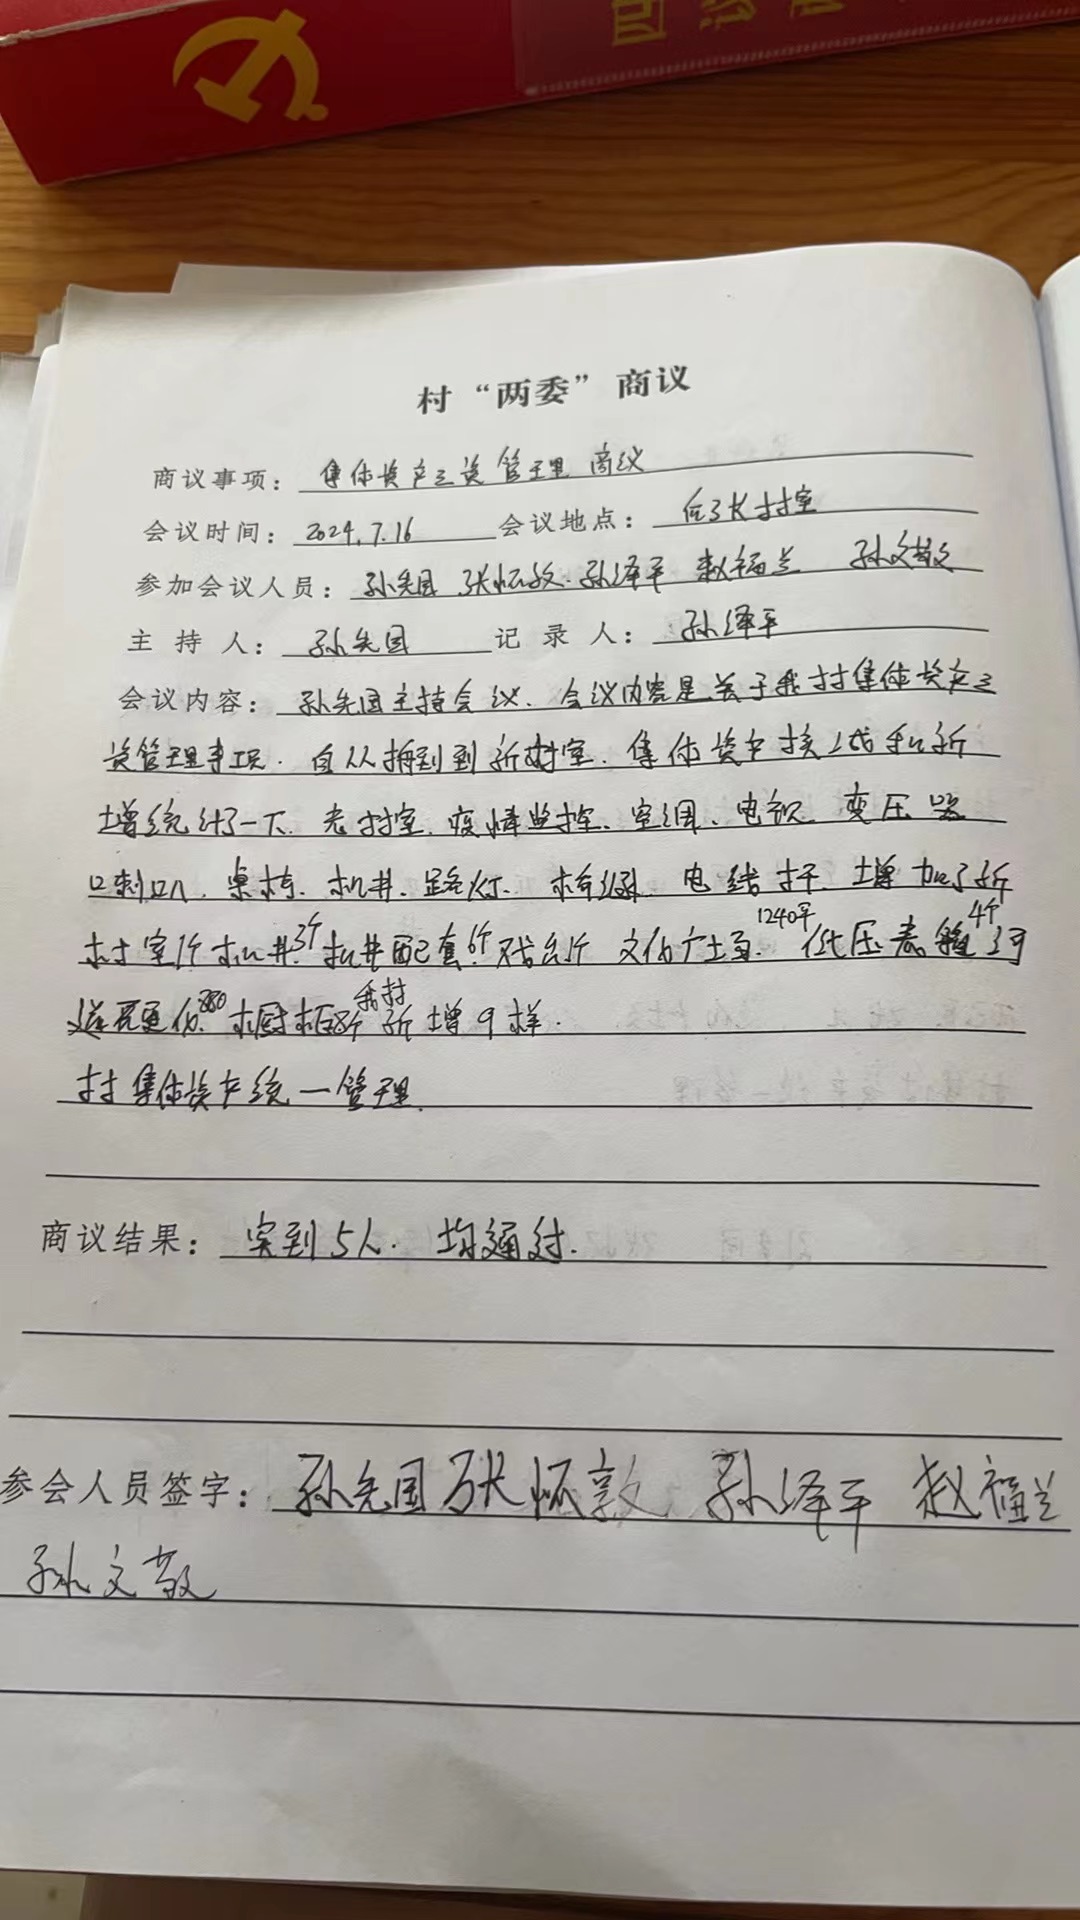 四议
村“两委”商议
商议事项：集体资产三资管理商议
会议时间：2024.7.16 会议地点：村室
参加会议人员：孙先国 张怀敦 孙泽平 赵福兰 孙文敬
主持人：孙先国 记录人：孙泽平
会议内容：孙先国主持会议. 会议内容是关于我村集体资产三
资管理事项. 自从搬到到新村室. 集体资产换 新
增统计了一下. 老村室. 疫情监控、空调、电视. 变压器
喇叭. 桌椅. 机井. 路灯. 电线杆 增加了新
村室1个 机井3个 机井配套6个 戏台1个 文化广场1240平. 低压 4个
280 橱柜 我村新增9样.
村集体资产统一管理.
商议结果：实到5人. 均通过.
参会人员签字：孙先国 张怀敦 孙泽平 赵福兰
孙文敬